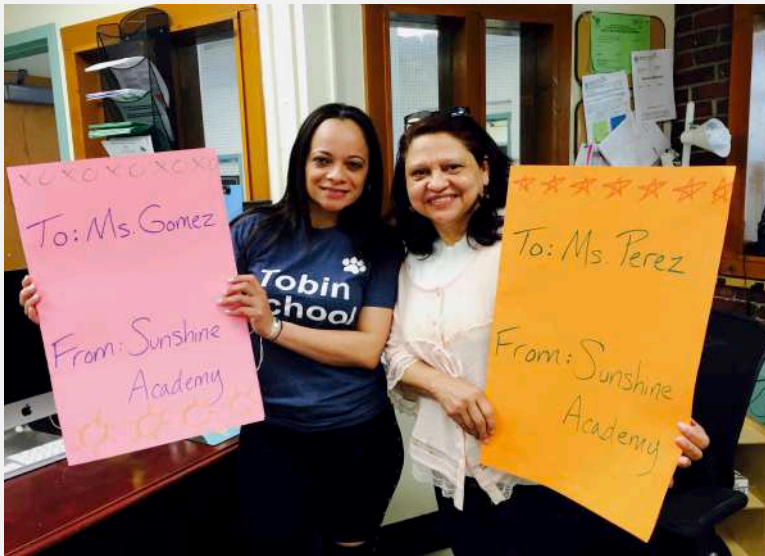 XOXOXOXOXO
To: Ms. Gomez
From: Sunshine
Academy
Tobin
School
To: Ms. Perez
From: Sunshine
Academy